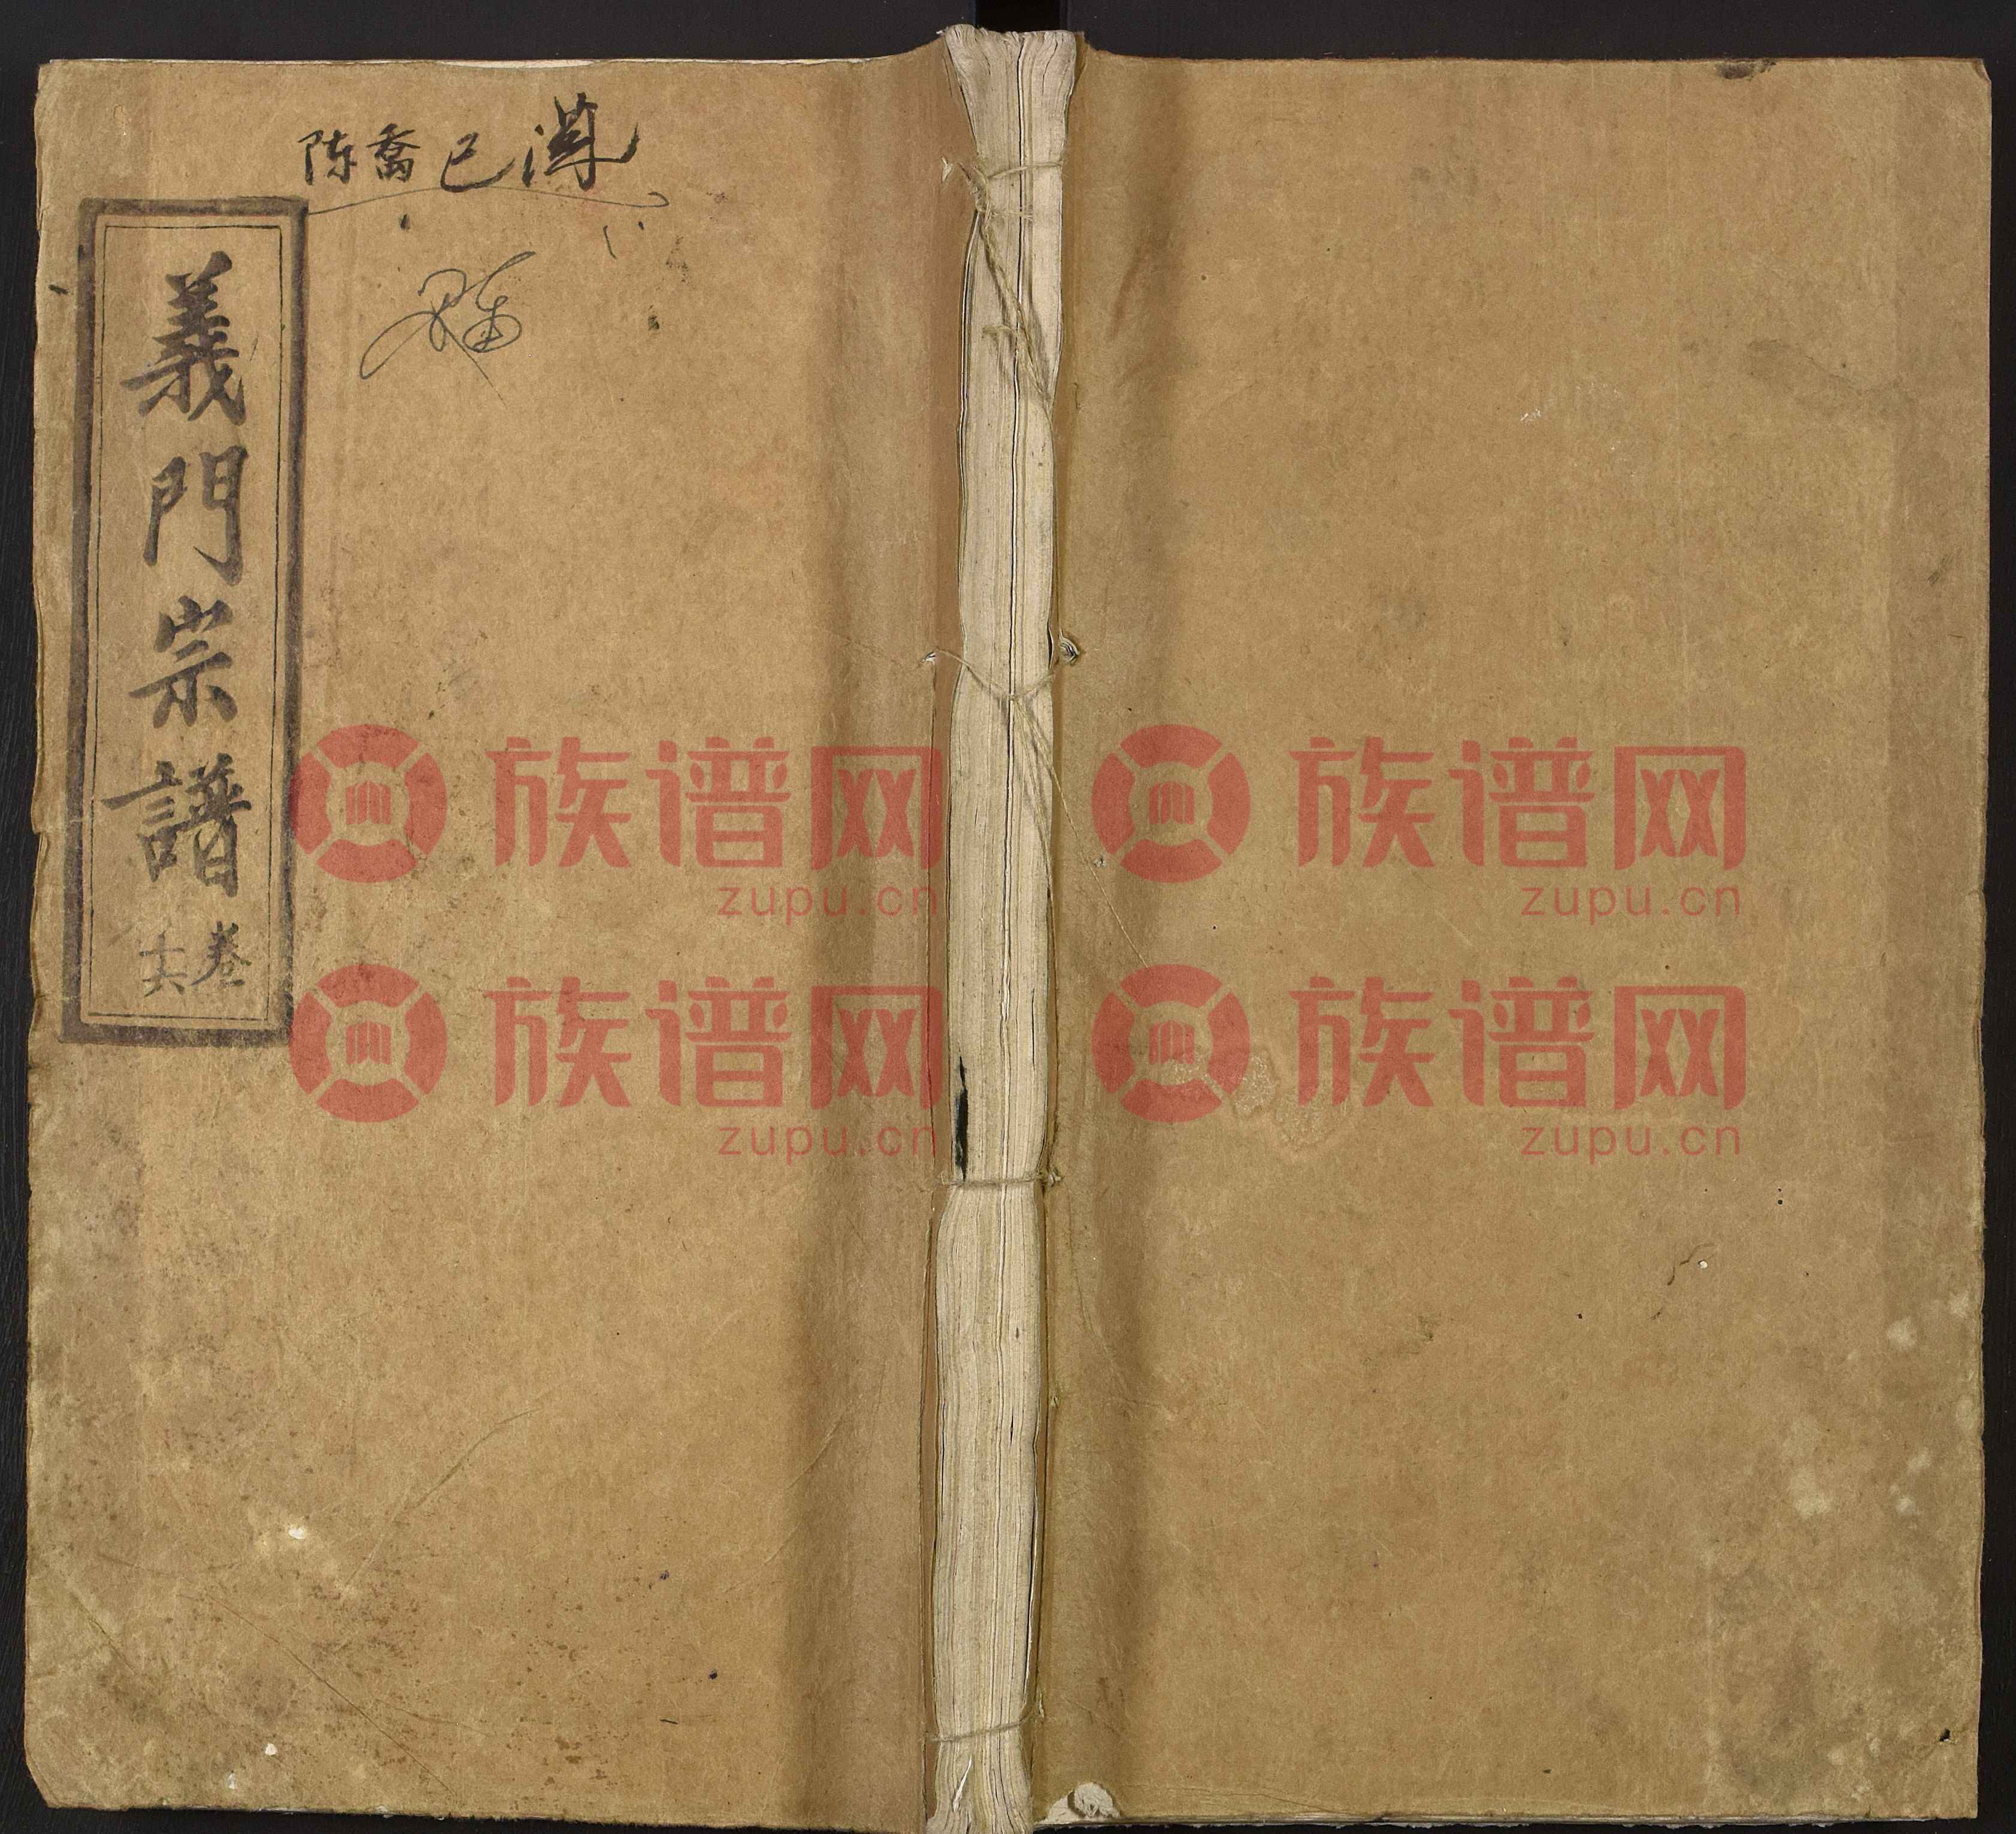 陈喬已
義門宗譜
卷
六
族谱网
zupu.cn
族谱网
zupu.cn
族谱网
zupu.cn
族谱网
zupu.cn